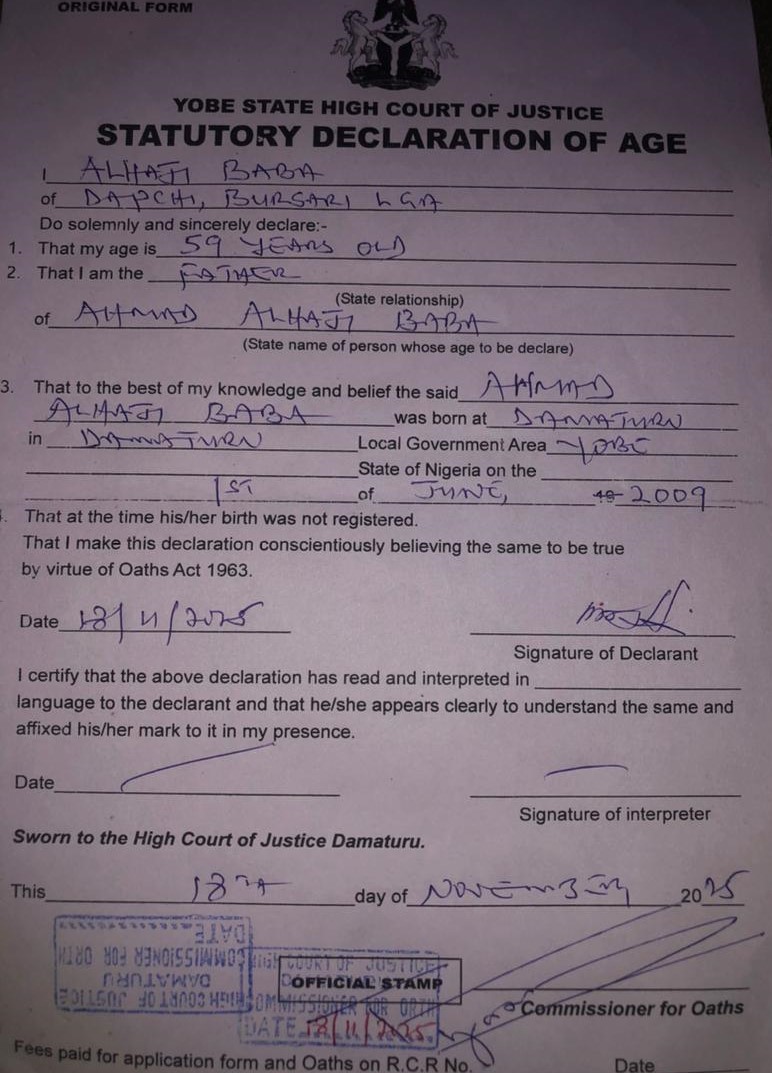 ORIGINAL FORM
YOBE STATE HIGH COURT OF JUSTICE
STATUTORY DECLARATION OF AGE
I ALHAJI BABA
of DAPCHI, BURSARI LGA
Do solemnly and sincerely declare:-
1. That my age is 59 YEARS OLD
2. That I am the FATHER
(State relationship)
of AHMAD ALHAJI BABA
(State name of person whose age to be declare)
3. That to the best of my knowledge and belief the said AHMAD
ALHAJI BABA was born at DAMATURU
in DAMATURU Local Government Area YOBE
State of Nigeria on the
1ST of JUNE, 19 2009
. That at the time his/her birth was not registered.
That I make this declaration conscientiously believing the same to be true
by virtue of Oaths Act 1963.
Date 18/11/2025
Signature of Declarant
I certify that the above declaration has read and interpreted in
language to the declarant and that he/she appears clearly to understand the same and
affixed his/her mark to it in my presence.
Date
Signature of interpreter
Sworn to the High Court of Justice Damaturu.
This 18TH day of NOVEMBER 2025
HIGH COURT OF JUSTICE
DAMATURU
COMMISSIONER FOR ORTH
DATE
HIGH COURT OF JUSTICE
OFFICIAL STAMP
COMMISSIONER FOR ORTH
DATE 18/11/2025
Commissioner for Oaths
Fees paid for application form and Oaths on R.C.R No. Date